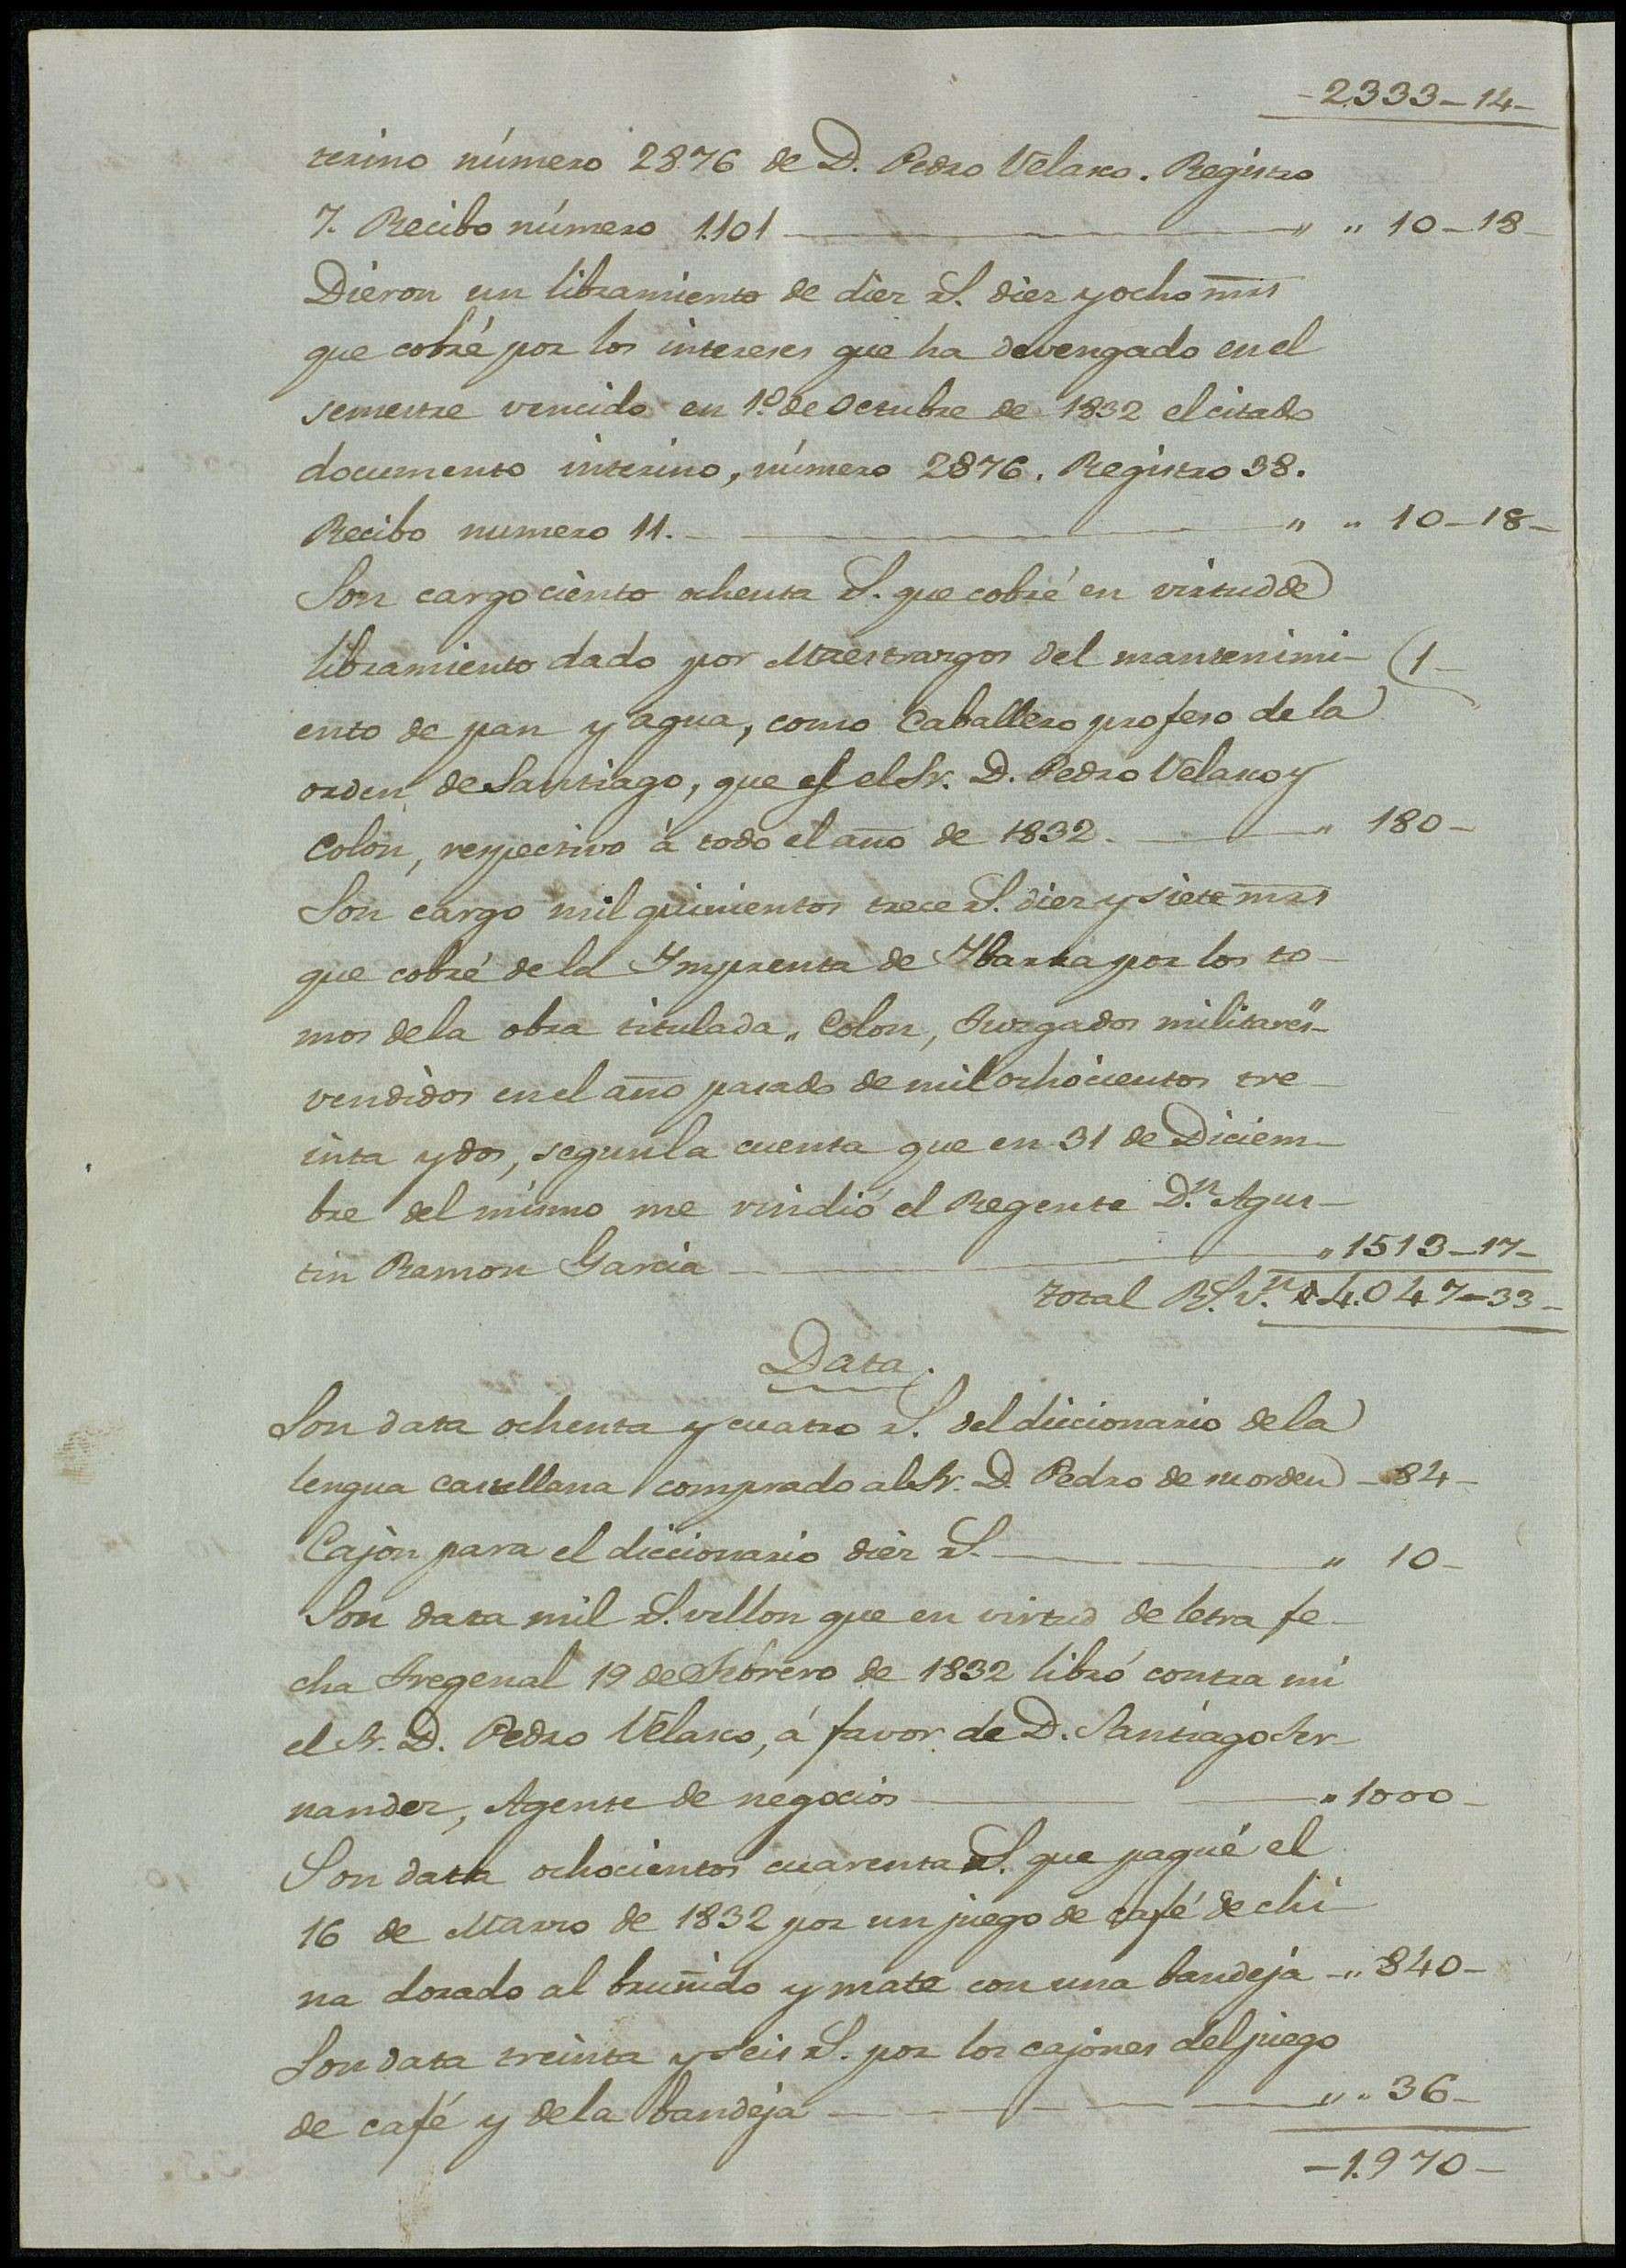 -2333-14-
terino número 2876 de D. Pedro Velasco. Registro
7. Recibo número 1.101 " " 10-18-
Dieron un libramiento de diez rs. diez y ocho mrs
que cobré por los intereses que ha devengado en el
semestre vencido en 1.º de Octubre de 1832 el citado
documento interino, número 2876. Registro 38.
Recibo numero 11. " " 10-18-
Son cargo ciento ochenta rs. que cobré en virtud de
libramiento dado por Maestrazgos del mantenimi- (1-
ento de pan y agua, como Caballero profeso de la
orden de Santiago, que es el Sr. D. Pedro Velasco y
Colon, respectivo à todo el año de 1832. " 180-
Son cargo mil quinientos trece rs. diez y siete mrs
que cobré de la Ymprenta de Ybarra por los to-
mos de la obra titulada „Colon, Juzgados militares"
vendidos en el año pasado de mil ochocientos tre-
inta y dos, segun la cuenta que en 31 de Diciem-
bre del mismo me rindió el Regente D.n Agus-
tin Ramon Garcia " 1513-17-
Total Rs. v.n 4.047-33-
Data.
Son data ochenta y cuatro rs. del diccionario de la
lengua castellana comprado al Sr. D. Pedro de su orden - 84-
Cajòn para el diccionario diez rs. " 10-
Son data mil rs. vellon que en virtud de letra fe-
cha Fregenal 19 de Febrero de 1832 libró contra mi
el Sr. D. Pedro Velasco, á favor de D. Santiago Fer-
nandez, Agente de negocios " 1000-
Son data ochocientos cuarenta rs. que pagué el
16 de Marzo de 1832 por un juego de café de chi-
na dorado al bruñido y mate con una bandeja -" 840-
Son data treinta y seis rs. por los cajones del juego
de café y de la bandeja " " 36-
-1.970-